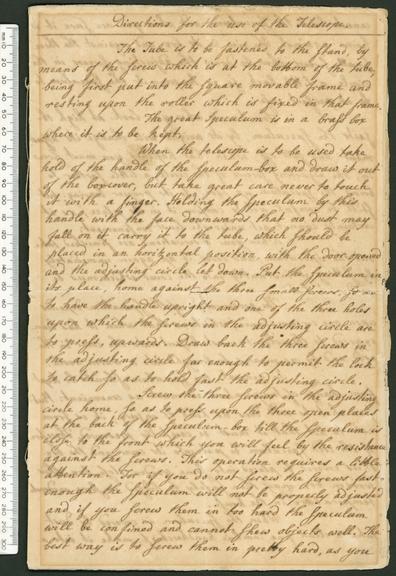 Directions for the use of the Telescope.
The Tube is to be fastened to the Stand, by
means of the screw which is at the bottom of the tube,
being first put into the square movable frame and
resting upon the roller which is fixed in that frame.
The great Speculum is in a brass box
where it is to be kept.
When the telescope is to be used take
hold of the handle of the Speculum-box and draw it out
of the box cover, but take great care never to touch
it with a finger. Holding the Speculum by this
handle with the face downwards that no dust may
fall on it carry it to the tube, which should be
placed in an horizontal position, with the door opened
and the adjusting circle let down. Put the Speculum in
its place, home against the three small screws, so as
to have the handle upright and one of the three holes
upon which the screws in the adjusting circle are
to press, upwards. Draw back the three screws in
the adjusting circle far enough to permit the lock
to catch so as to hold fast the adjusting circle.
Screw the three screws in the adjusting
circle home, so as to press upon the three open places
at the back of the Speculum-box till the Speculum is
close to the front which you will feel by the resistance
against the screws. This operation requires a little
attention. For if you do not screw the screws fast
enough the Speculum will not be properly adjusted
and if you screw them in too hard the Speculum
will be confined and cannot shew objects well. The
best way is to screw them in pretty hard, as you